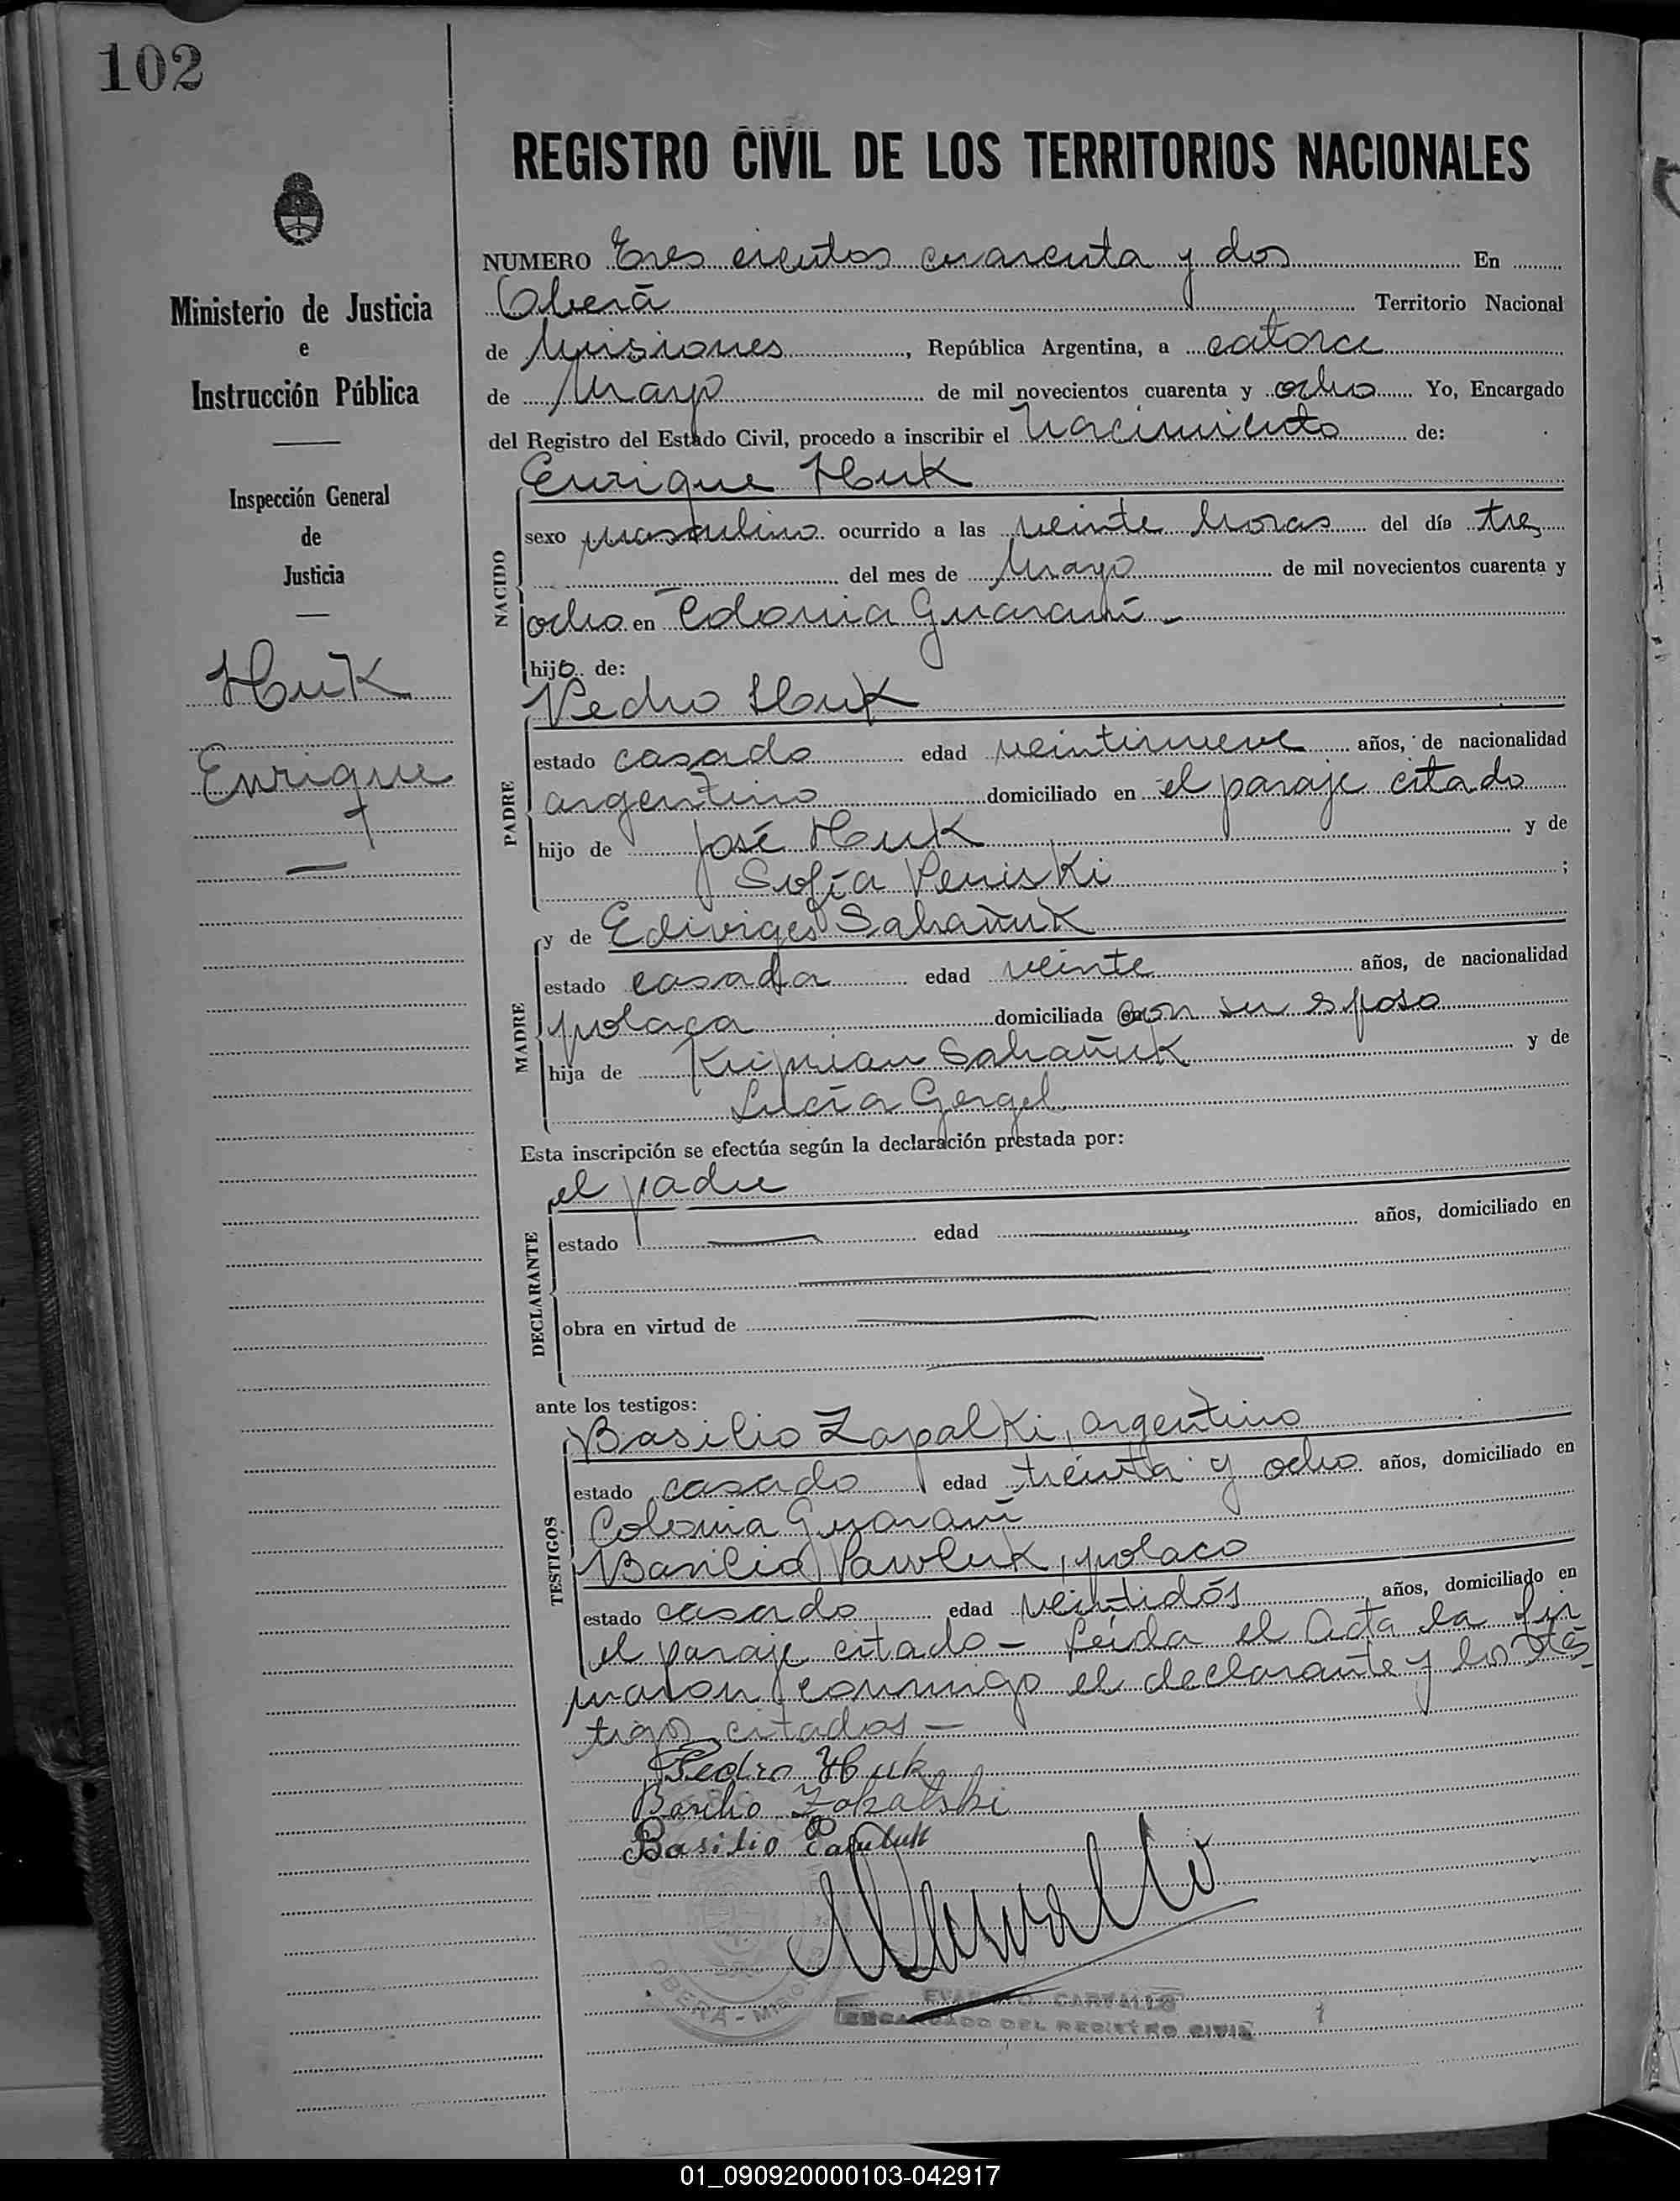 102
REGISTRO CIVIL DE LOS TERRITORIOS NACIONALES
Ministerio de Justicia
e
Instrucción Pública
Inspección General
de
Justicia
Huk
Enrique
NUMERO Tres cientos cuarenta y dos En
Oberá Territorio Nacional
de Misiones, República Argentina, a catorce
de Mayo de mil novecientos cuarenta y ocho Yo, Encargado
del Registro del Estado Civil, procedo a inscribir el Nacimiento de:
Enrique Huk
NACIDO
sexo masculino ocurrido a las veinte horas del día tres
del mes de Mayo de mil novecientos cuarenta y
ocho en Colonia Guaraní -
hijo de:
Pedro Huk
PADRE
estado casado edad veintinueve años, de nacionalidad
argentino domiciliado en el paraje citado
hijo de José Huk y de
Sofía Peniski ;
y de Ediviges Sahañuk
MADRE
estado casada edad veinte años, de nacionalidad
polaca domiciliada con su esposo
hija de Kiprian Sahañuk y de
Lucía Gergel
Esta inscripción se efectúa según la declaración prestada por:
el padre
DECLARANTE
estado edad años, domiciliado en
obra en virtud de
ante los testigos:
TESTIGOS
Basilio Zapalki, argentino
estado casado edad treinta y ocho años, domiciliado en
Colonia Guaraní
Basilio Pawluk, polaco
estado casado edad veintidós años, domiciliado en
el paraje citado - Leída el Acta la fir
maron conmigo el declarante y los tes
tigos citados -
Pedro Huk
Basilio
Basilio Pawluk
OBERÁ - MISIONES
CARVALLO
ENCARGADO DEL REGISTRO CIVIL
01_090920000103-042917